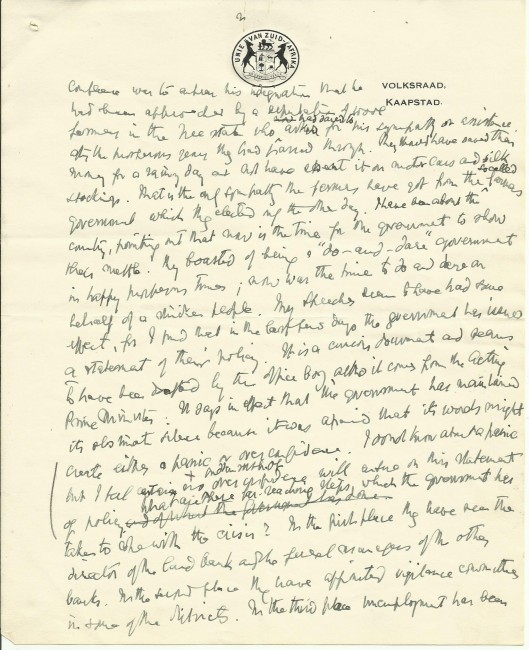 2
UNIE VAN ZUID-AFRIKA
VOLKSRAAD,
KAAPSTAD.
was to his resignation that he
had been approached by a deputation of wool
and had said to
farmers in the Free State who asked for his sympathy or assistance
after the prosperous years they had passed through. They should have saved their
money for a rainy day and not have spent it on motor cars and silk
so called
stockings. That is the only sympathy the farmers have got from the farmers
government which they elected only the other day. I have been about the
country, pointing out that now is the time for the government to show
their mettle. They boasted of being a "do-and-dare" government
in happy prosperous times; now was the time to do and dare on
behalf of a stricken people. My speeches seem to have had some
effect, for I find that in the last few days the government has issued
a statement of their policy. It is a curious document and seems
to have been drafted by the office boy, altho it comes from the Acting
Prime Minister. It says in effect that the government has maintained
its obstinate silence because it was afraid that its words might
create either a panic or over confidence. I don't know about a panic
but I feel no over confidence will ensue on this statement
of policy. What are these far reaching steps which the government has
taken to cope with the crisis? In the first place they have seen the
director of the Land Bank and the general managers of the other
banks. In the second place they have appointed vigilance committees
in some of the districts. In the third place unemployment has been